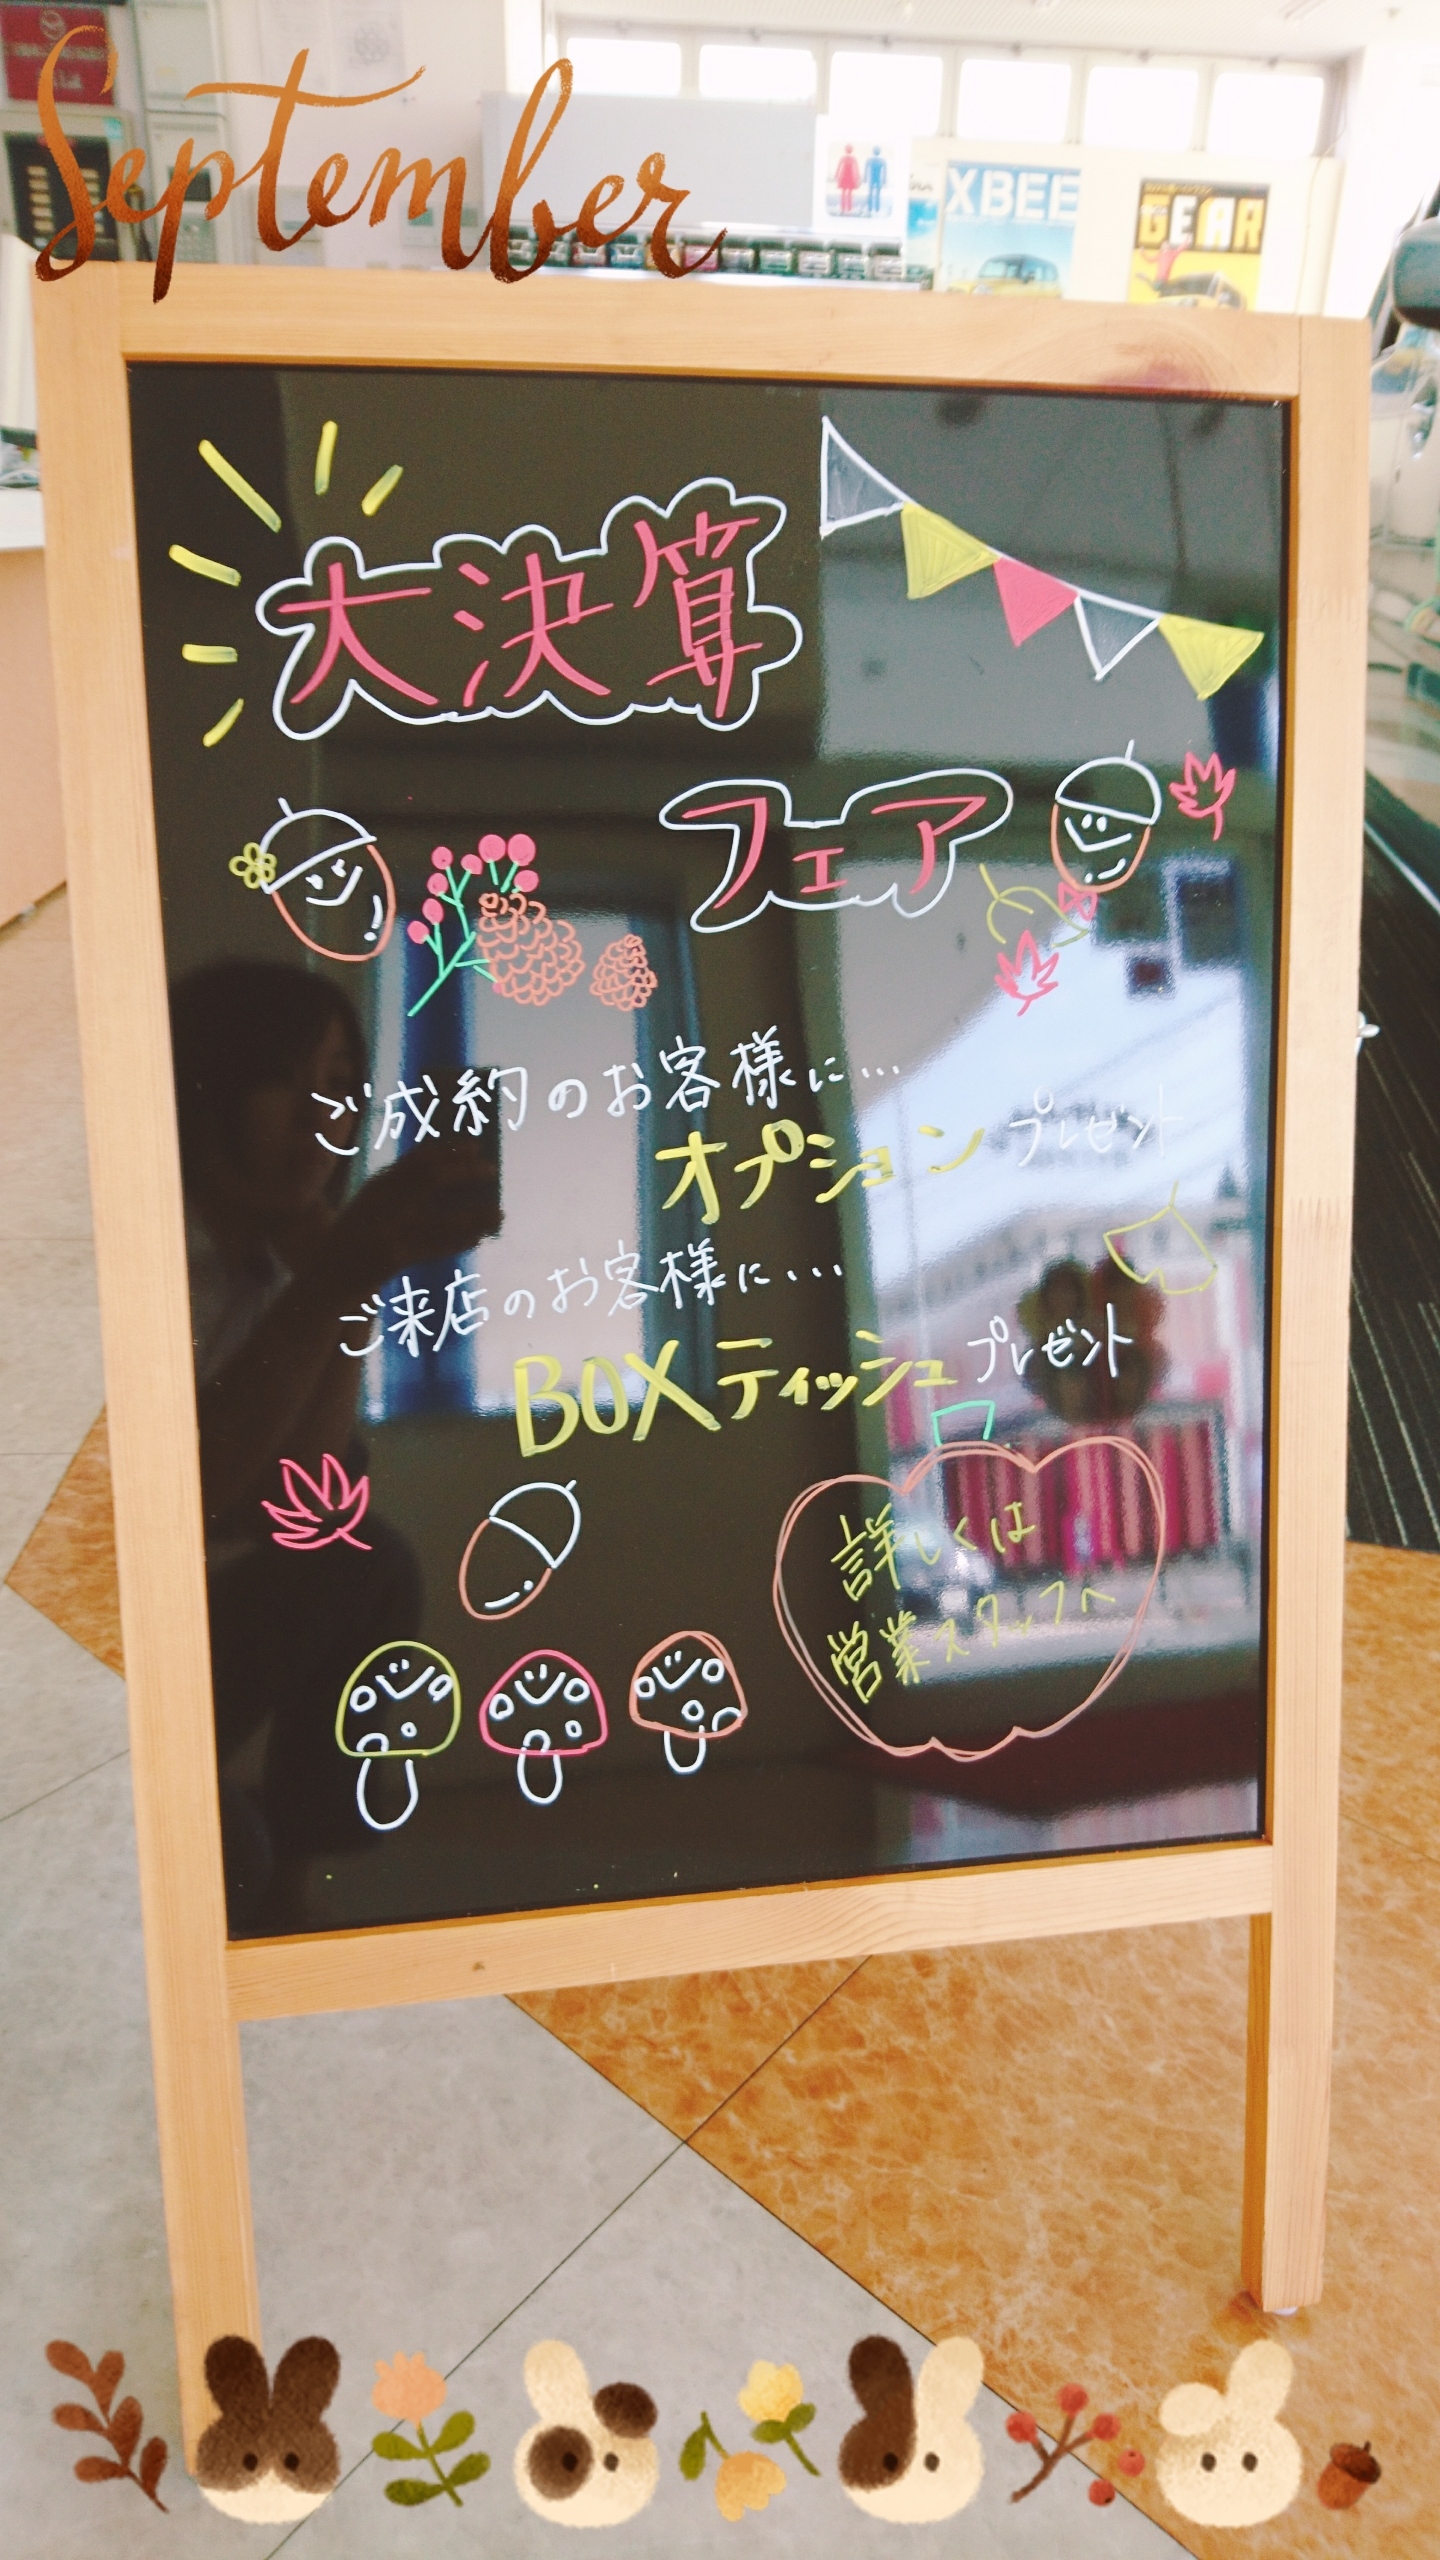 September
XBEE
GEAR
大決算
フェア
ご成約のお客様に…
オプションプレゼント
ご来店のお客様に…
BOXティッシュプレゼント
詳しくは
営業スタッフへ